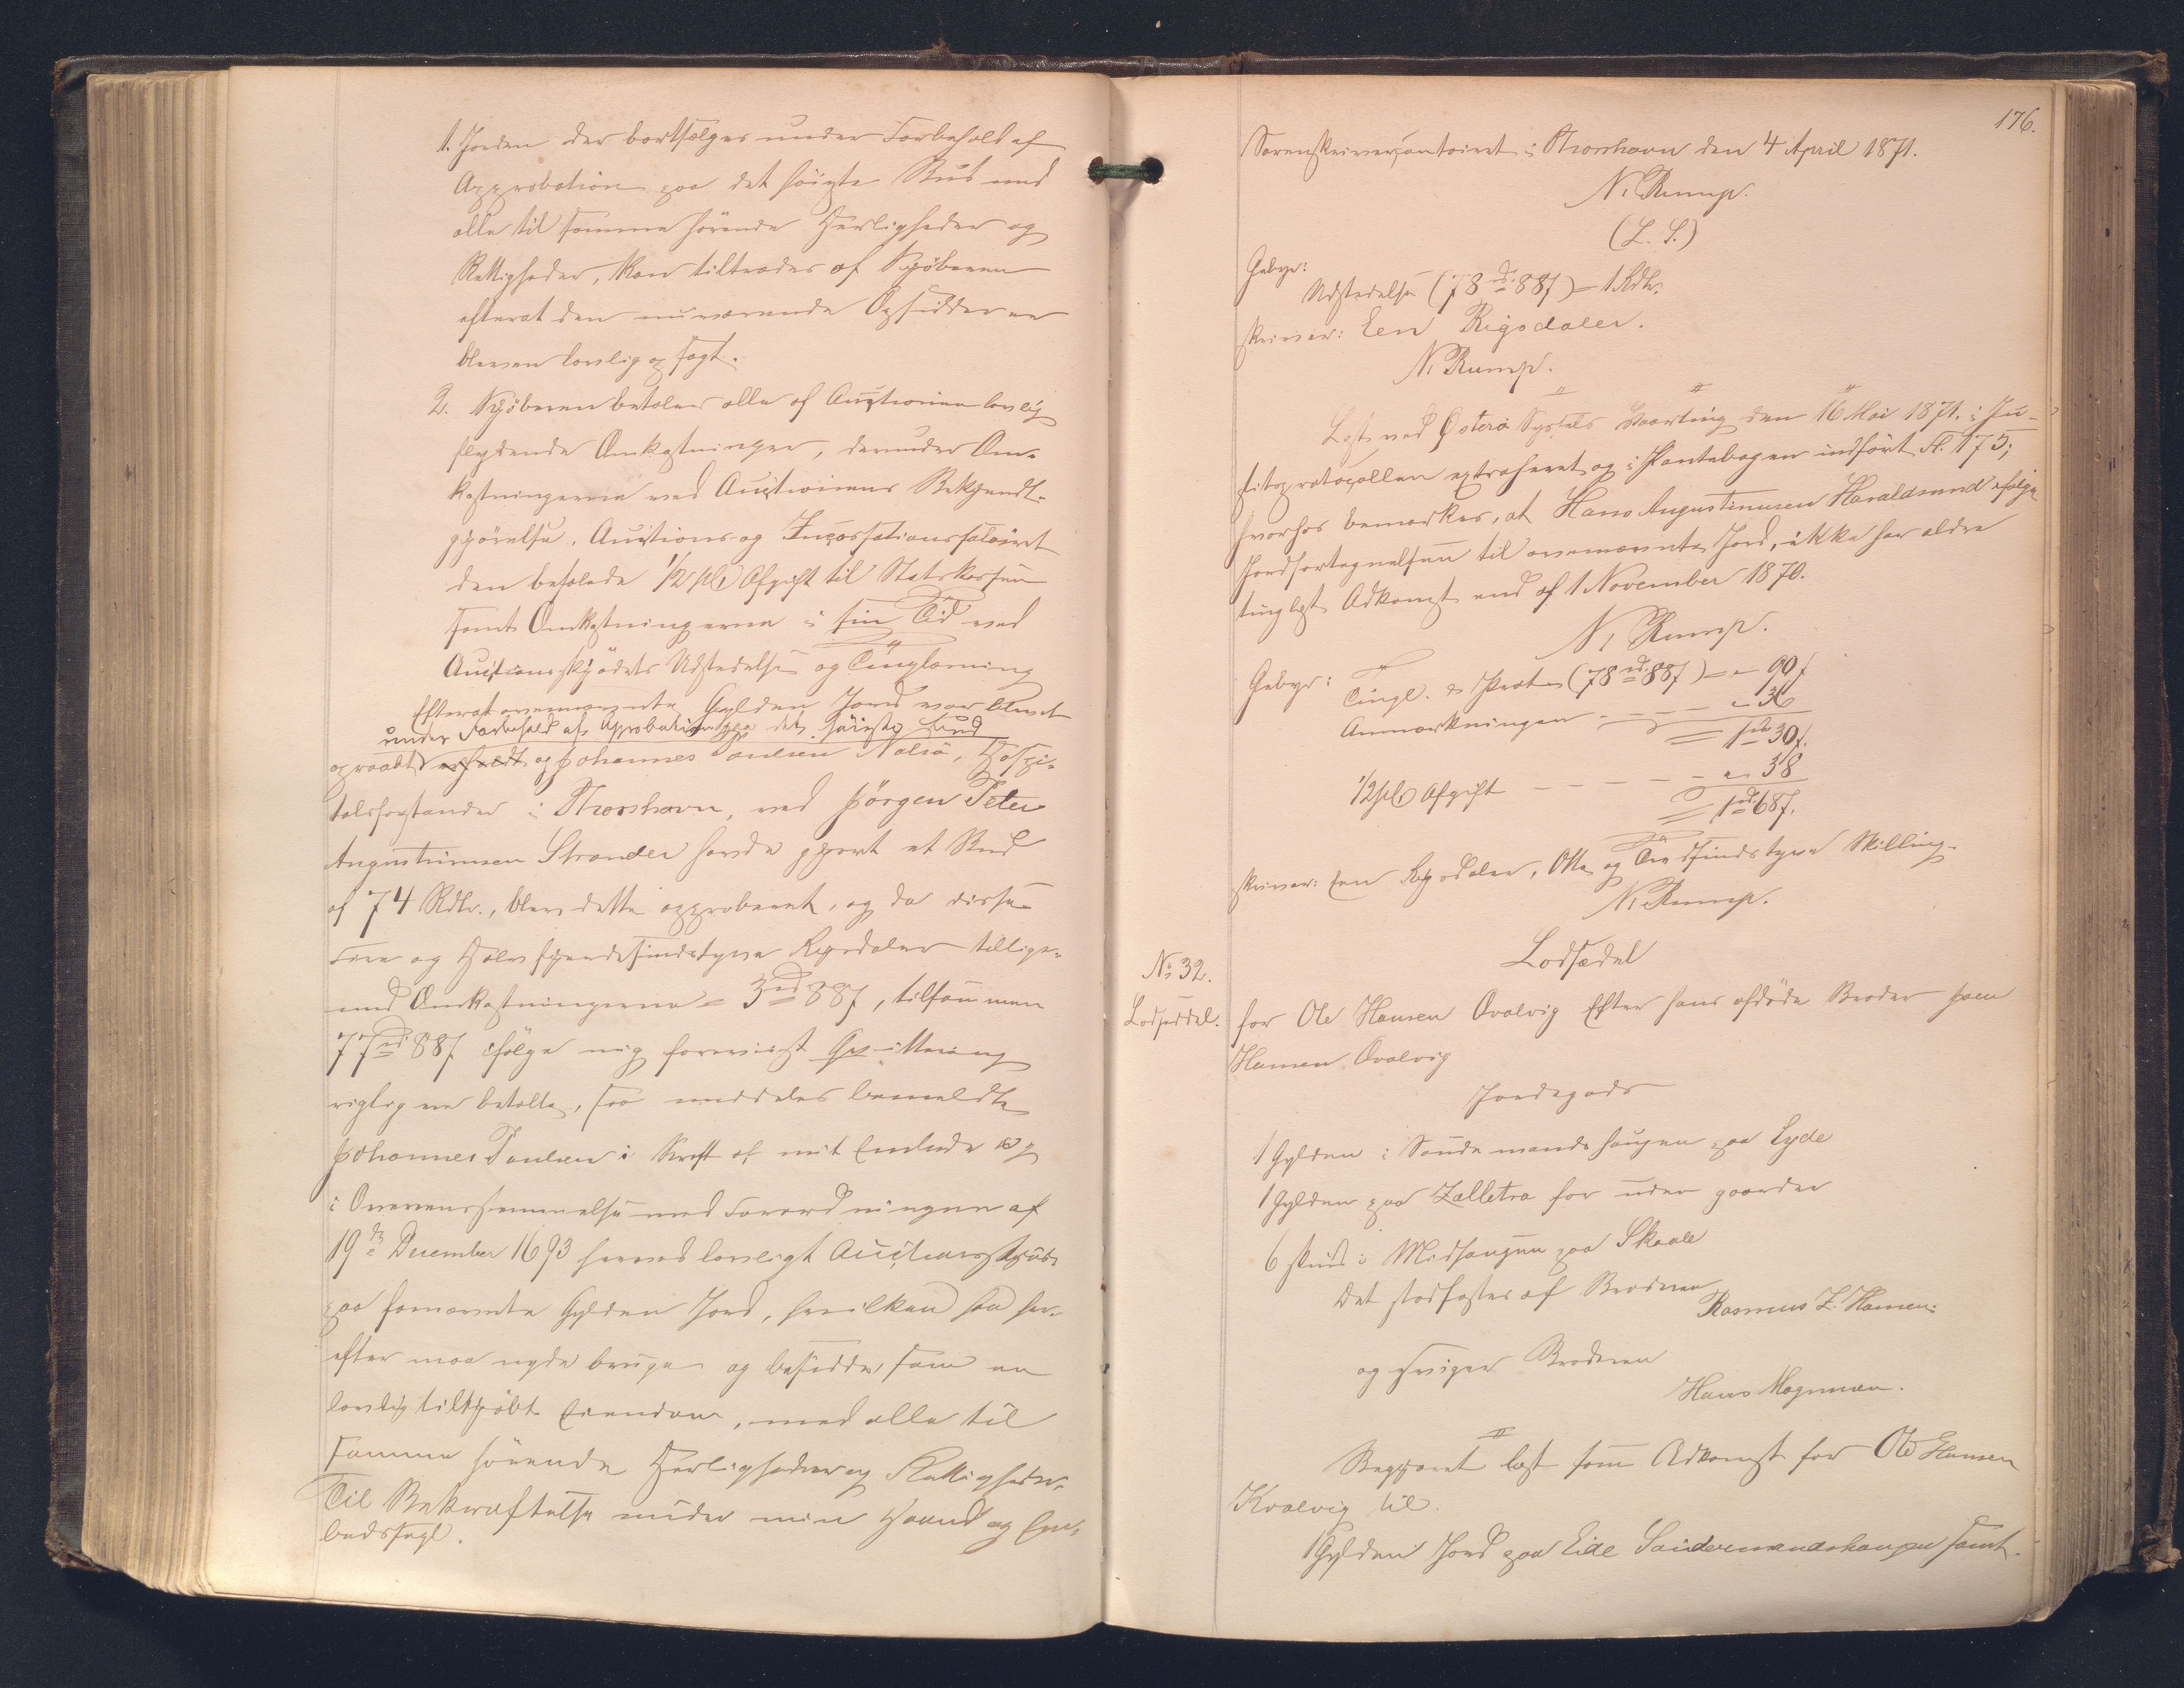 1. Jorden der bortsælges under Forbehold af
Approbation paa det høieste Bud med
alle til samme hørende Herligheder og
Rettigheder, kan tiltrædes af Kjøberen
efterat den nuværende Opsidder er
bleven lovlig opsagt.
2. Kjøberen betaler alle af Auctionen lovlig
flydende Omkostninger, derunder Om-
kostningerne ved Auctionens Bekjendt-
gjørelse, Auctions- og Incassationssalairet
den befalede 1/2 pCt Afgift til Statskassen
samt Omkostningerne i sin Tid ved
Auctionsskjødets Udstedelse og Tinglæsning
Efterat ovennævnte Gylden Jord var blevet
under Forbehold af Approbation paa det høieste Bud
opraabt og Johannes Poulsen Nolsø, Hospi-
talsforstander i Thorshavn, ved Jörgen Peter
Augustinusen Strender havde gjort et Bud
af 74 Rdlr., blev dette approberet, og da disse
Fire og Halvfjerdesindstyve Rigsdaler tillige-
med Omkostningerne = 3 rd 88 f, tilsammen
77 rd 88 f ifølge mig forevist Qvittering
rigtig ere betalte, saa meddeles bemeldte
Johannes Poulsen i Kraft af mit Embede og
i Overensstemmelse med Forordningen af
19de December 1693 herved lovligt Auctionsskjøde
paa fornævnte Gylden Jord, hvilken han her-
efter maa nyde bruge og besidde som en
lovlig tilkjøbt Eiendom, med alle til
samme hørende Herligheder og Rettigheder.
Til Bekræftelse under min Haand og Em-
bedssegl.
176.
Sorenskrivercontoiret i Thorshavn den 4 April 1871.
N. Rump.
(L. S.)
Gebyr:
Udstedelse (78 rd 88 f) = 1 Rdlr.
skriver: Een Rigsdaler.
N. Rump.
Læst ved Østerø Syssels Vaarting den 16 Mai 1871, i Ju-
stitsprotocollen extraheret og i Pantebogen indført Fl. 175;
hvorhos bemærkes, at Hans Augustinusen Haraldsund ifølge
Jordfortegnelsen til ovennævnte Jord, ikke har ældre
tinglyst Adkomst end af 1 November 1870.
N. Rump.
Gebyr: Tingl. & Prot. (78 rd 88 f) = " - 90 f
Anmærkningen - - - - " 36
1 rd 30 f.
1/2 pCt Afgift - - - - " 38
1 rd 68 f.
skriver: Een Rigsdaler, Otte og Tredsindstyve Skilling.
N. Rump.
No 32.
Lodseddel.
Lodsedel
for Ole Hansen Qvalvig Efter hans afdøde Broder Joen
Hansen Qvalvig
Jordegods
1 Gylden i Søndemandshaugen paa Eyde
1 Gylden paa Zelletræ for uden gaarder
6 skind i Midhaugen paa Skaale
Det stadfæstes af Brødrene
Rasmus Z. Hansen.
og sviger Broderen
Hans Magnusen.
Begjæret læst som Adkomst for Ole Hansen
Kvalvig til
1 Gylden Jord paa Eide Søndermandshaugen samt.